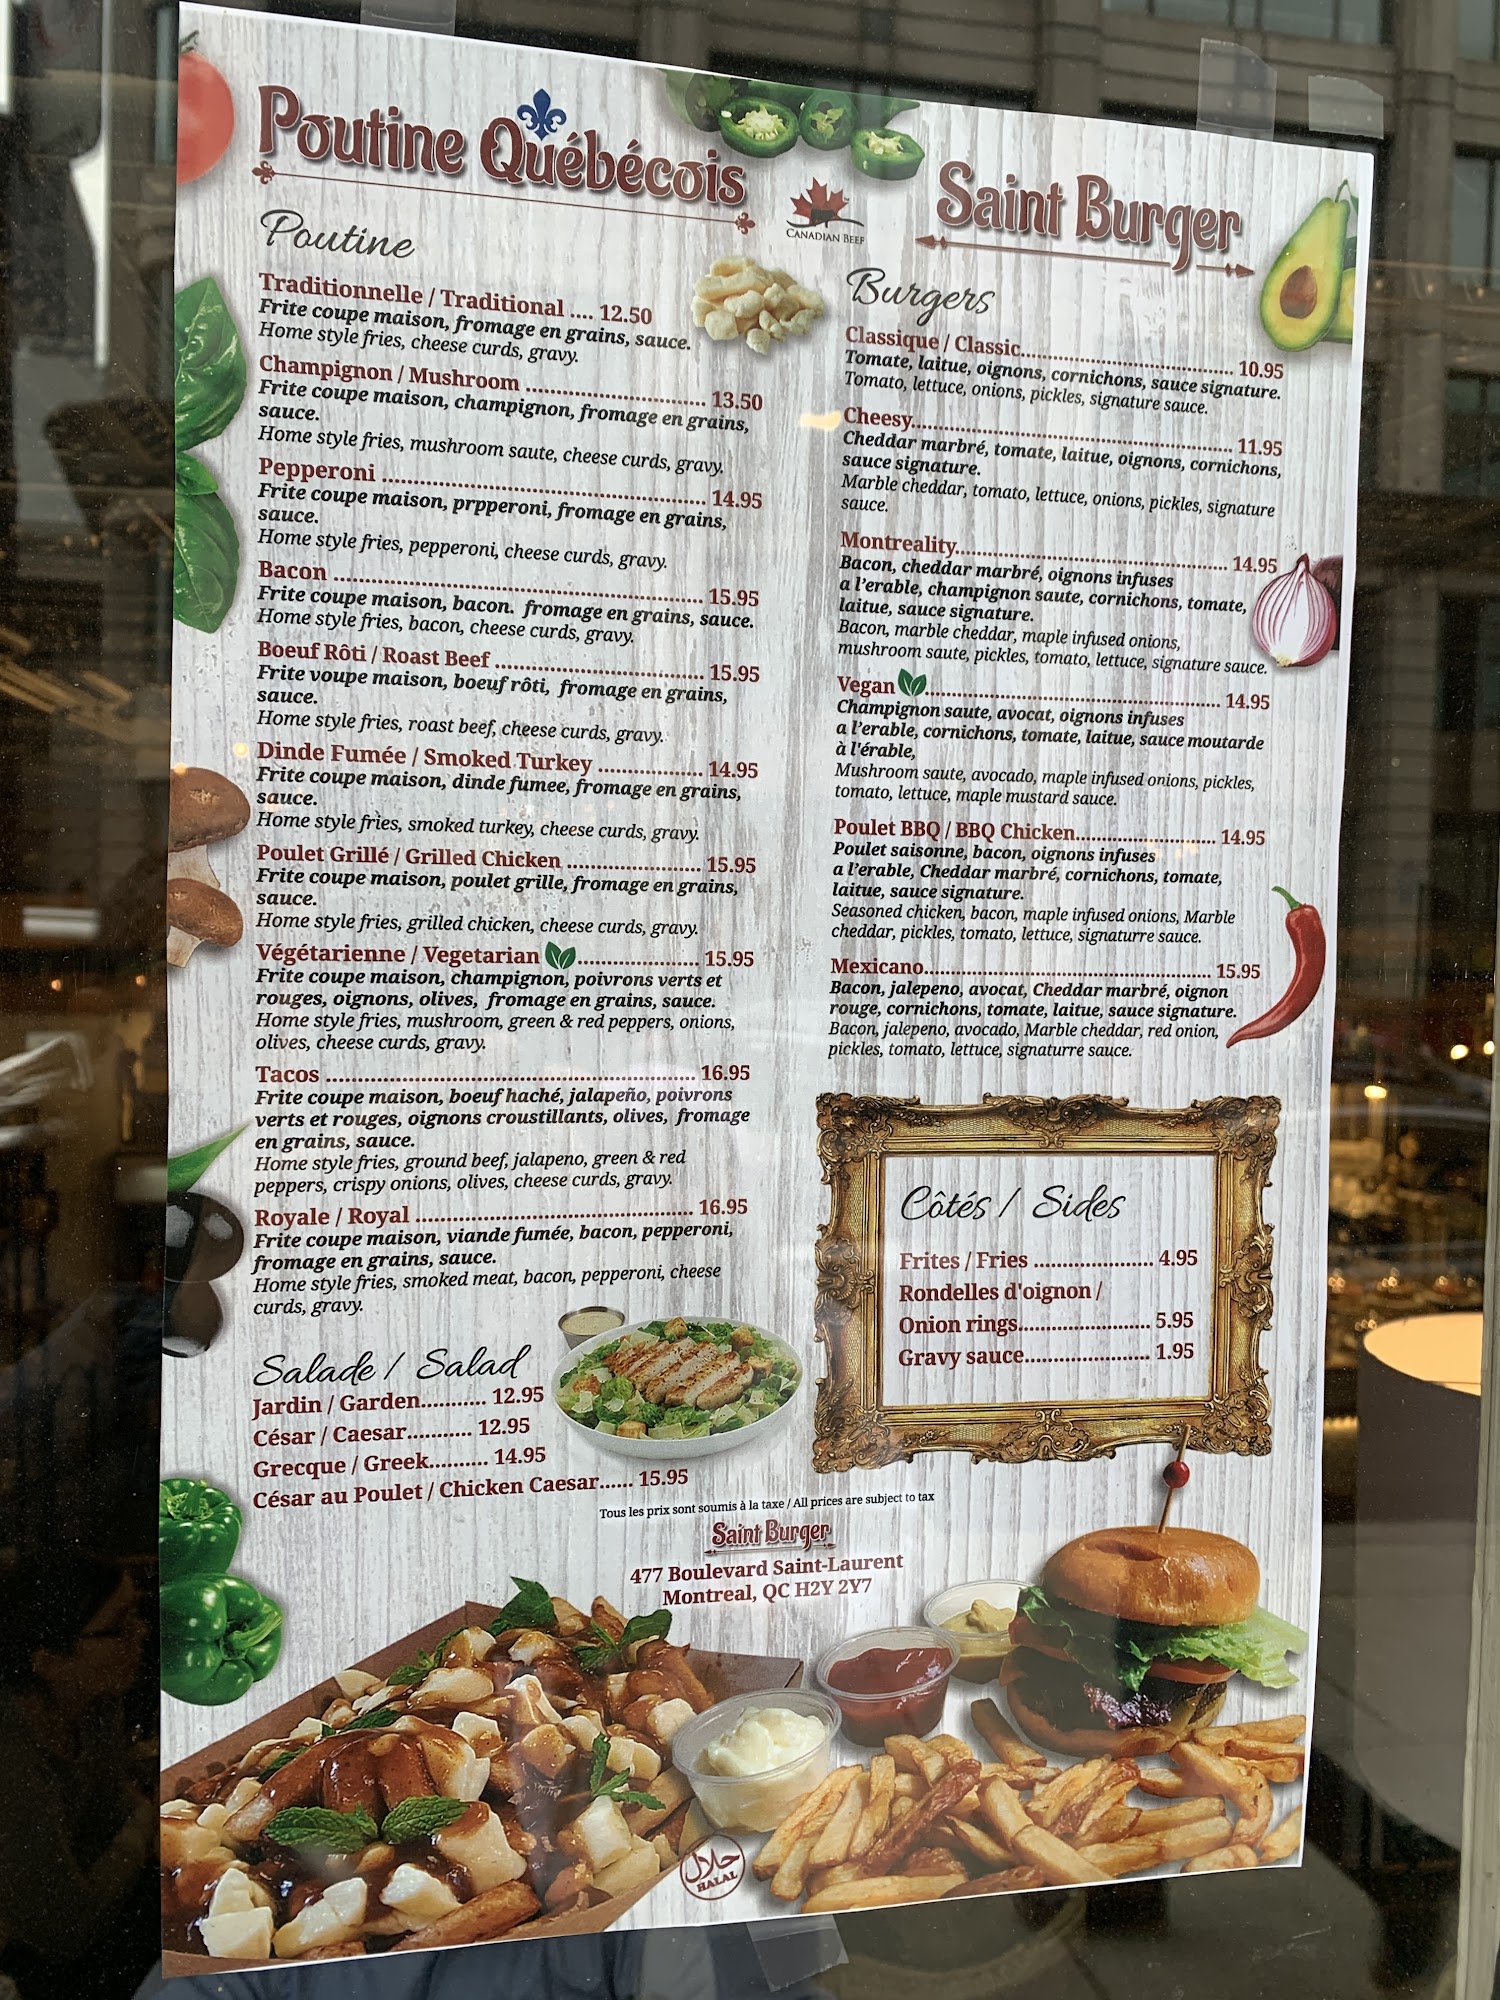 Poutine Québécois
Poutine
Traditionnelle / Traditional .... 12.50
Frite coupe maison, fromage en grains, sauce.
Home style fries, cheese curds, gravy.
Champignon / Mushroom .............................. 13.50
Frite coupe maison, champignon, fromage en grains,
sauce.
Home style fries, mushroom saute, cheese curds, gravy.
Pepperoni ...................................................... 14.95
Frite coupe maison, prpperoni, fromage en grains,
sauce.
Home style fries, pepperoni, cheese curds, gravy.
Bacon .............................................................. 15.95
Frite coupe maison, bacon. fromage en grains, sauce.
Home style fries, bacon, cheese curds, gravy.
Boeuf Rôti / Roast Beef ................................... 15.95
Frite voupe maison, boeuf rôti, fromage en grains,
sauce.
Home style fries, roast beef, cheese curds, gravy.
Dinde Fumée / Smoked Turkey .................. 14.95
Frite coupe maison, dinde fumee, fromage en grains,
sauce.
Home style fries, smoked turkey, cheese curds, gravy.
Poulet Grillé / Grilled Chicken ....................... 15.95
Frite coupe maison, poulet grille, fromage en grains,
sauce.
Home style fries, grilled chicken, cheese curds, gravy.
Végétarienne / Vegetarian ..................... 15.95
Frite coupe maison, champignon, poivrons verts et
rouges, oignons, olives, fromage en grains, sauce.
Home style fries, mushroom, green & red peppers, onions,
olives, cheese curds, gravy.
Tacos ................................................................ 16.95
Frite coupe maison, boeuf haché, jalapeño, poivrons
verts et rouges, oignons croustillants, olives, fromage
en grains, sauce.
Home style fries, ground beef, jalapeno, green & red
peppers, crispy onions, olives, cheese curds, gravy.
Royale / Royal ................................................ 16.95
Frite coupe maison, viande fumée, bacon, pepperoni,
fromage en grains, sauce.
Home style fries, smoked meat, bacon, pepperoni, cheese
curds, gravy.
Salade / Salad
Jardin / Garden........... 12.95
César / Caesar........... 12.95
Grecque / Greek.......... 14.95
César au Poulet / Chicken Caesar...... 15.95
CANADIAN BEEF
Saint Burger
Burgers
Classique / Classic.................................... 10.95
Tomate, laitue, oignons, cornichons, sauce signature.
Tomato, lettuce, onions, pickles, signature sauce.
Cheesy....................................................... 11.95
Cheddar marbré, tomate, laitue, oignons, cornichons,
sauce signature.
Marble cheddar, tomato, lettuce, onions, pickles, signature
sauce.
Montreality.............................................. 14.95
Bacon, cheddar marbré, oignons infuses
a l'erable, champignon saute, cornichons, tomate,
laitue, sauce signature.
Bacon, marble cheddar, maple infused onions,
mushroom saute, pickles, tomato, lettuce, signature sauce.
Vegan .................................................. 14.95
Champignon saute, avocat, oignons infuses
a l'erable, cornichons, tomate, laitue, sauce moutarde
à l'érable,
Mushroom saute, avocado, maple infused onions, pickles,
tomato, lettuce, maple mustard sauce.
Poulet BBQ / BBQ Chicken........................ 14.95
Poulet saisonne, bacon, oignons infuses
a l'erable, Cheddar marbré, cornichons, tomate,
laitue, sauce signature.
Seasoned chicken, bacon, maple infused onions, Marble
cheddar, pickles, tomato, lettuce, signaturre sauce.
Mexicano.................................................. 15.95
Bacon, jalepeno, avocat, Cheddar marbré, oignon
rouge, cornichons, tomate, laitue, sauce signature.
Bacon, jalepeno, avocado, Marble cheddar, red onion,
pickles, tomato, lettuce, signaturre sauce.
Côtés / Sides
Frites / Fries ...................... 4.95
Rondelles d'oignon /
Onion rings........................ 5.95
Gravy sauce....................... 1.95
Tous les prix sont soumis à la taxe / All prices are subject to tax
Saint Burger
477 Boulevard Saint-Laurent
Montreal, QC H2Y 2Y7
حلال
HALAL